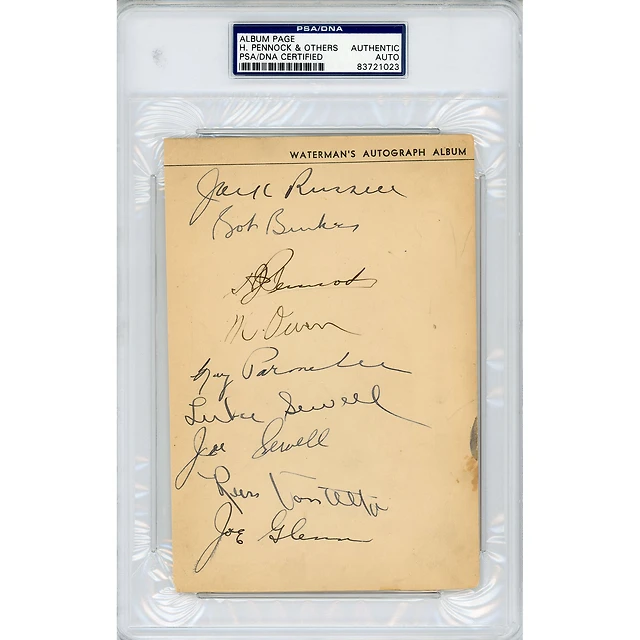 PSA/DNA
ALBUM PAGE
H. PENNOCK & OTHERS AUTHENTIC
PSA/DNA CERTIFIED AUTO
83721023
WATERMAN'S AUTOGRAPH ALBUM
Jack Russell
Bob
H J Pennock
M. Owen
Ray
Luke Sewell
Joe Sewell
Russ Van Atta
Joe Glenn